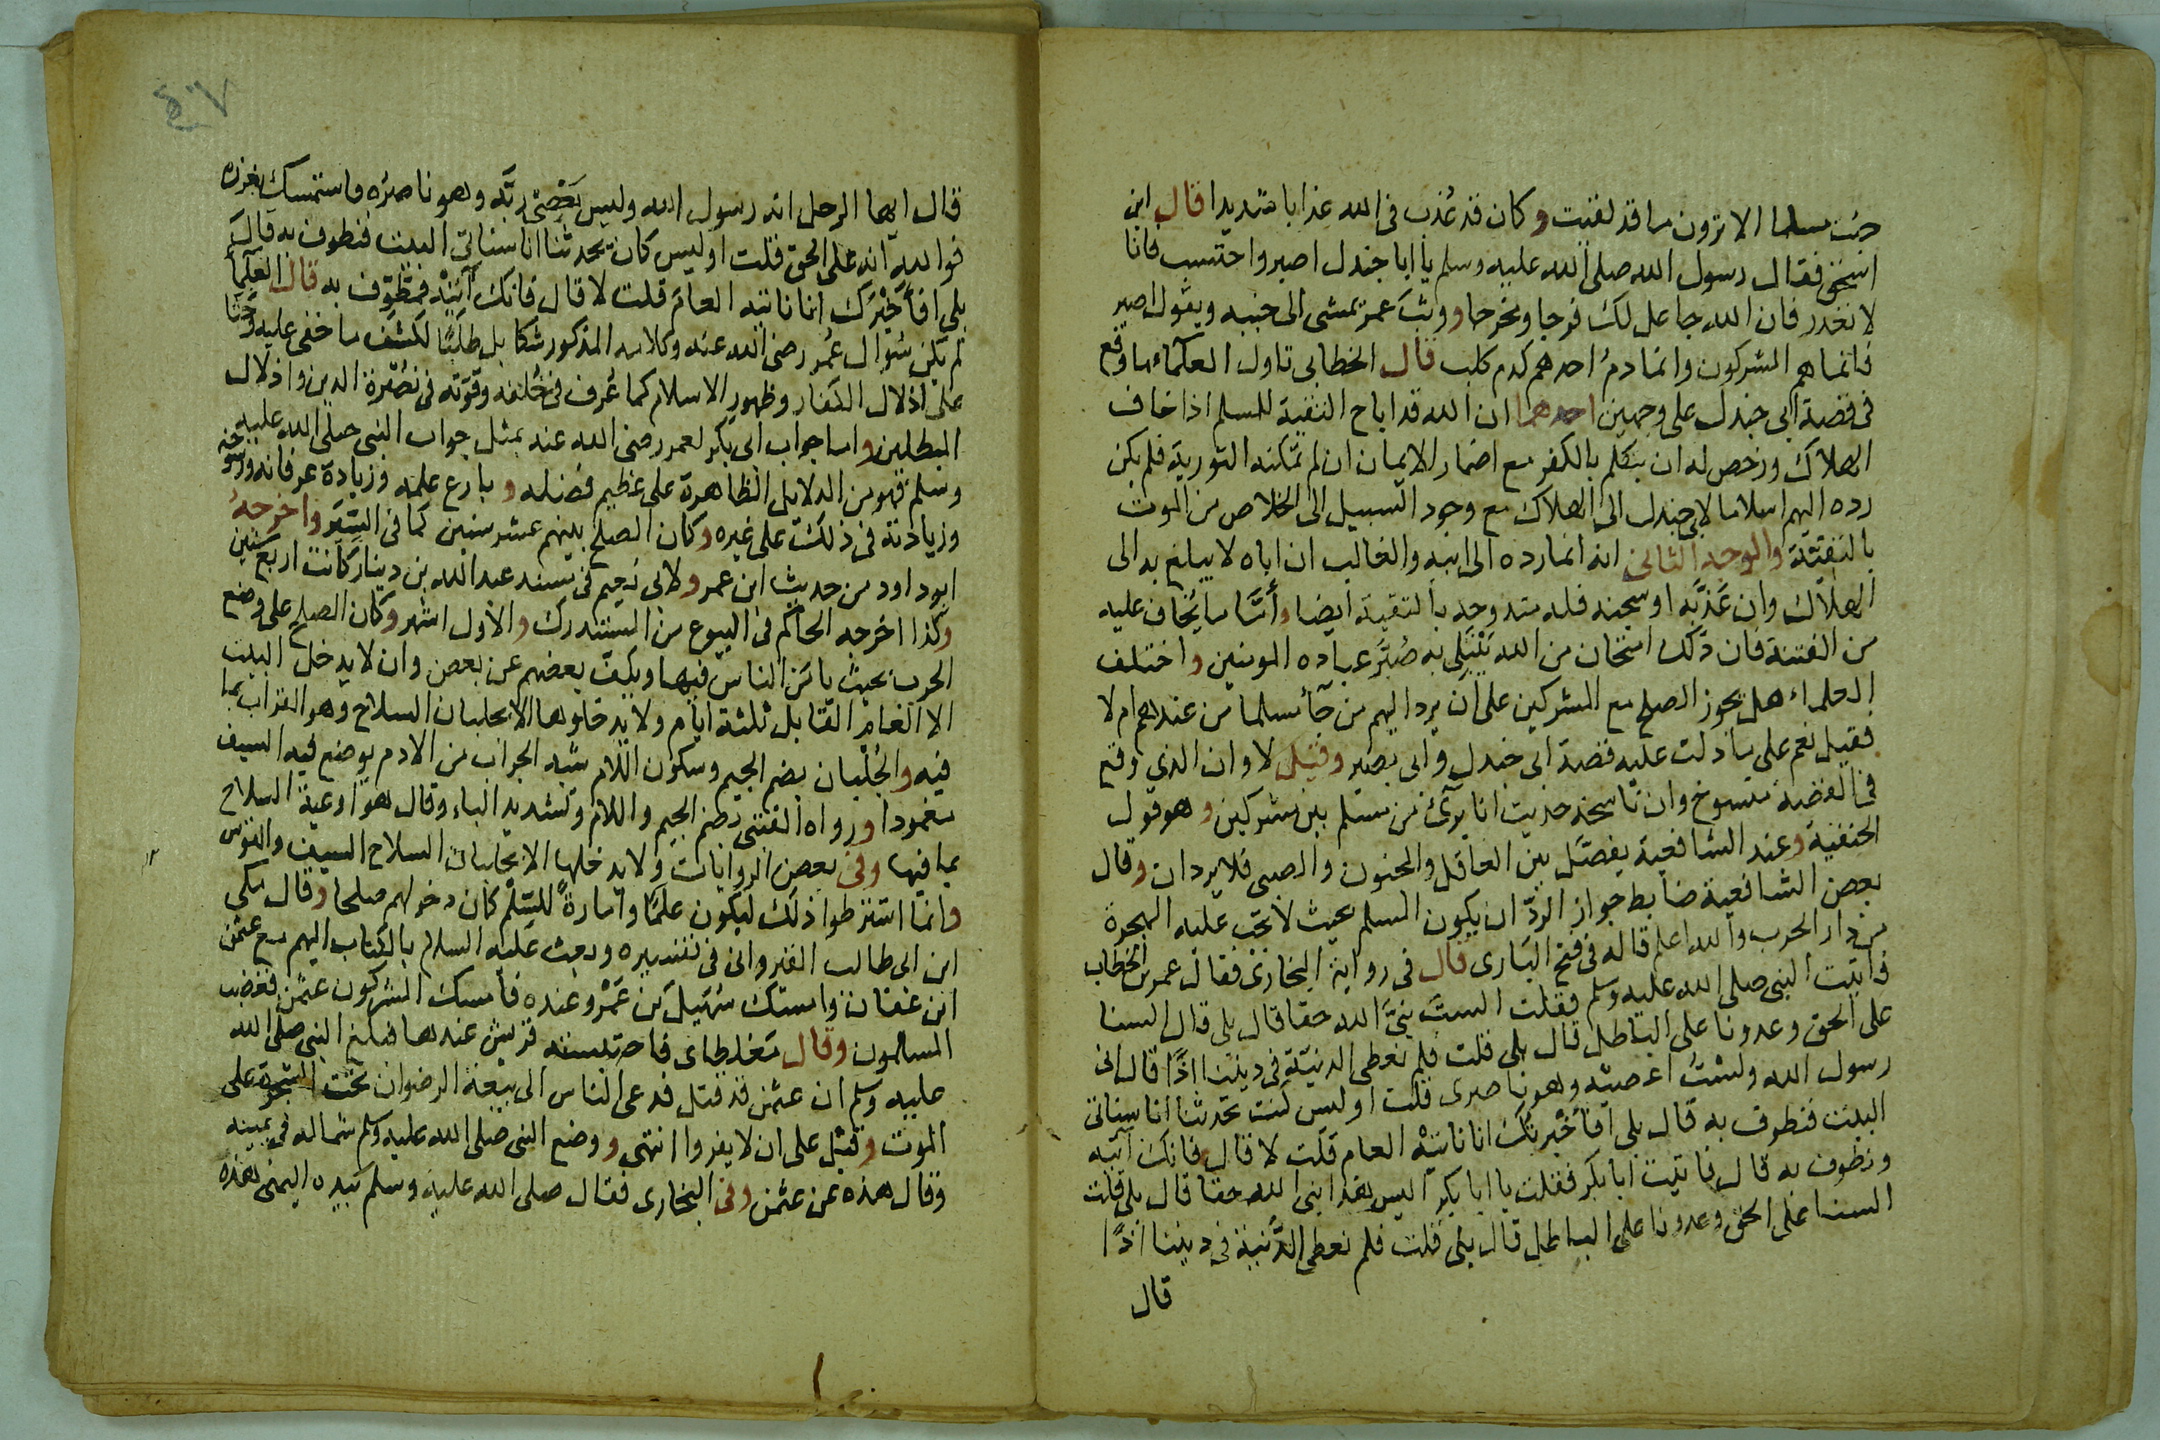 جئت مسلما الا ترون ما قد لقيت وكان قد عُذب فى الله عذابا شديدا قال ابن
اسحق فقال رسول الله صلى الله عليه وسلم يا ابا جندل اصبر واحتسب فانا
لا نغدر فان الله جاعل لك فرجا ومخرجا ووثبَ عمر يمشى الى جنبه ويقول اصبر
فانما هم المشركون وانما دمُ احدهم كدم كلب قال الخطابى تاول العلماء ما وقع
فى قصة ابى جندل على وجهين احدهما ان الله قد اباح التقية للمسلم اذا خاف
الهلاك ورخص له ان يتكلم بالكفر مع اضمار الايمان ان لم تمكنه التورية فلم يكن
رده اليهم اسلاما لابى جندل الى الهلاك مع وجود السبيل الى الخلاص من الموت
بالتقيّة والوجه الثانى انه انما رده الى ابيه والغالب ان اباه لا يبلغ به الى
الهلاك وان عَذَّبه او سجنه فله مندوحة بالتقية ايضا وأمّا ما يُخاف عليه
من الفتنة فان ذلك امتحان من الله يَبْتَلِى به صُبَّر عباده المومنين واختلف
العلماء هل يجوز الصلح مع المشركين على ان يرد اليهم من جآء مسلما من عندهم ام لا
فقيل نعم على ما دلت عليه قصة ابى جندل وابى بصير وقيل لا وان الذى وقع
فى القصة منسوخ وان ناسخه حديث انا برىٔ من مسلم بين مشركين وهو قول
الحنفية وعند الشافعية يفصّل بين العاقل والمجنون والصبى فلا يردان وقال
بعض الشافعية ضابط جواز الردّ ان يكون المسلم بحيث لا تجب عليه الهجرة
من دار الحرب والله اعلم قاله فى فتح البارى قال فى رواية البخارى فقال عمر بن الخطاب
فاتيت النبى صلى الله عليه وسلم فقلت الستَ نبىَّ الله حقا قال بلى قال السنا
على الحق وعدونا على الباطل قال بلى قلت فلم نعطى الدنيّة فى ديننا اذًا قال انى
رسول الله ولستُ اعصيه وهو ناصرى قلت اوليس كنت تحدثنا انا سناتى
البيت فنطوف به قال بلى افاَخْبرتك انا ناتيْه العام قلت لا قال فانك اتيه
وتطوف به قال فاتيت ابا بكر فقلت يا ابا بكر اليس هذا نبى الله حقا قال بلى قلت
السنا على الحق وعدونا على الباطل قال بلى قلت فلم نعطى الدَّنية فى ديننا اذًا
قال
قال ايها الرجل انه رسول الله وليس يَعْصِى ربّه وهو ناصرُه فاستمسك بغرزه
فوالله انه على الحق قلت اوليس كان يحدثنا انا سناتى البيت فنطوف به قال
بلى افأَخْبَرَك انا ناتيه العامَ قلت لا قال فانك آتيْه فمطَّوّف به قال العلمآء
لم يكن سُوال عُمر رضى الله عنه وكلامه المذكور شكا بل طلبًا لكشف ما خفى عليه وحثا
على اذلال الكفار وظهور الاسلام كما عُرف فى خُلقه وقوّته فى نُصْرة الدين واذلال
المبطلين واما جواب ابى بكر لعمر رضى الله عنه بمثل جواب النبى صلى الله عليه
وسلم فهو من الدلايل الظاهرة على عظيم فضله وبارع علمه وزيادة عرفانه ورسوخه
وزيادته فى ذلك على غيره وكان الصلح بينهم عشر سنين كما فى السِّيَر واخرجهُ
ابو داود من حديث ابن عمر ولابى نعيم فى مسند عبد الله بن دينار كانت اربع سنين
وكذا اخرجه الحاكم فى البيوع من المستدرك والاول اشهر وكان الصلح على وضع
الحرب بحيث يامَن الناس فيها ويكفّ بعضهم عن بعض وان لا يدخل البيت
الا العام القابل ثلثة ايام ولا يدخلوها الا بجلبان السلاح وهو القراب بما
فيه والجُلْبان بضم الجيم وسكون اللام شبه الجراب من الادم يوضع فيه السيف
مغمودا ورواه القتبى بضم الجيم واللام وتشديد الباء وقال هو اوعية السلاح
بما فيها وفى بعض الروايات ولا يدخلها الا بجلبان السلاح السيف والقوس
وانما اشترطوا ذلك ليكون علَمًا وامارةً للسّلْم كان دخولهم صلحا وقال مكى
ابن ابى طالب القيروانى فى تفسيره وبعث عليه السلام بالكتاب اليهم مع عثمٰن
ابن عفّان وامسَك سُهَيل بن عَمْرو عنده فامسك المشركون عثمٰن فغضب
المسلمون وقال مَغلطاى فاحتبسته قريش عندها فبلغ النبى صلى الله
عليه وسلم ان عثمٰن قد قتل فدعى الناس الى بيْعة الرضوان تحت الشجرة على
الموت وقيْل على ان لا يفروا انتهى ووضع النبى صلى الله عليه وسلم شماله فى يمينه
وقال هذه عن عثمٰن وفى البخارى فقال صلى الله عليه وسلم بيده اليمنى هذه